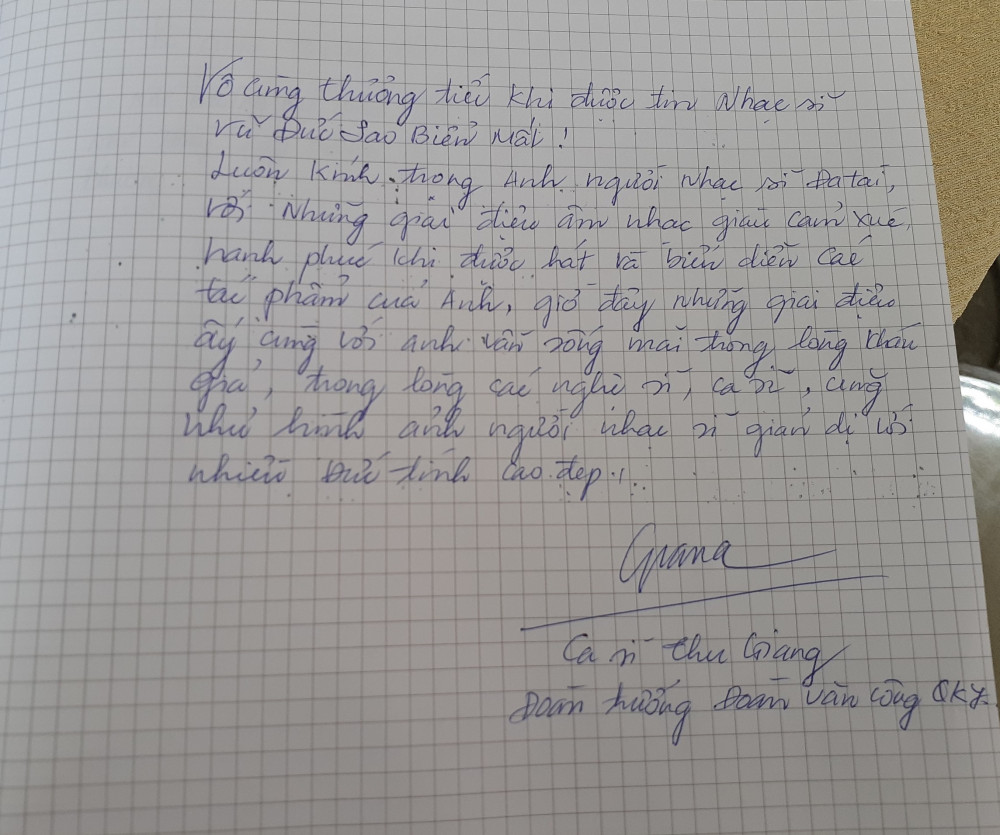 Vô cùng thương tiếc khi được tin Nhạc sĩ
Vũ Đức Sao Biển Mất!
Luôn kính trọng Anh người nhạc sĩ Đa tài,
với những giai điệu âm nhạc giàu cảm xúc,
hạnh phúc khi được hát và biểu diễn các
tác phẩm của Anh, giờ đây những giai điệu
ấy cùng với anh vẫn sống mãi trong lòng khán
giả, trong lòng các nghệ sĩ, ca sĩ, cũng
như hình ảnh người nhạc sĩ giản dị với
nhiều Đức tính cao đẹp.!
Giang
Ca sĩ Thu Giang
Đoàn trưởng Đoàn Văn công QK7.